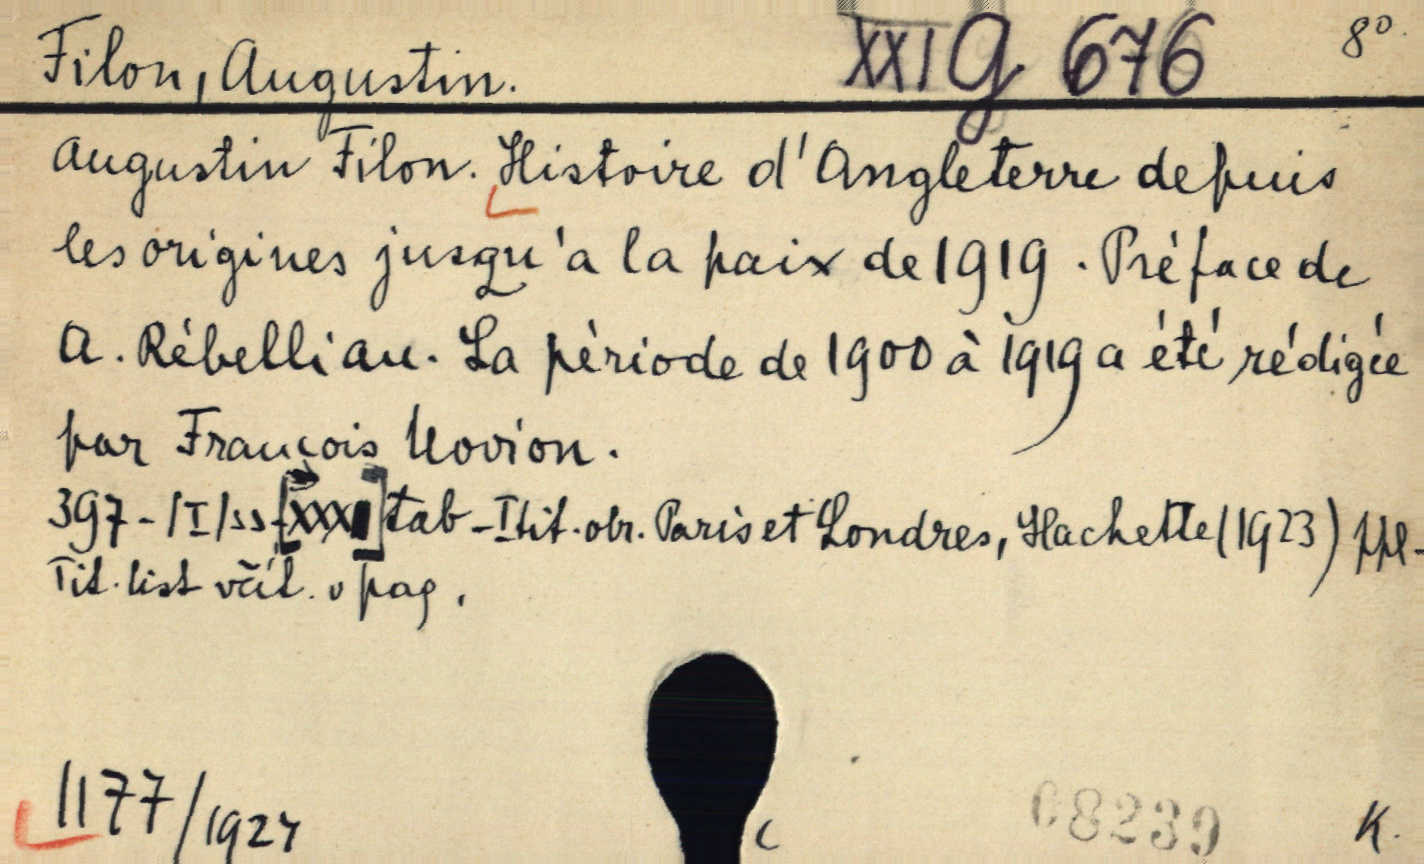 Filon, Augustin. XXI G 676 8°.
Augustin Filon. Histoire d'Angleterre depuis
les origines jusqu'a la paix de 1919. Préface de
A. Rébelliau. La période de 1900 à 1919 a été rédigée
par François Novion.
397-/I/ss-[XXX]tab-I tit. obr. Paris et Londres, Hachette (1923) ppl-
Tit. list včít. v pag.
1177/1927
C 08239 K.